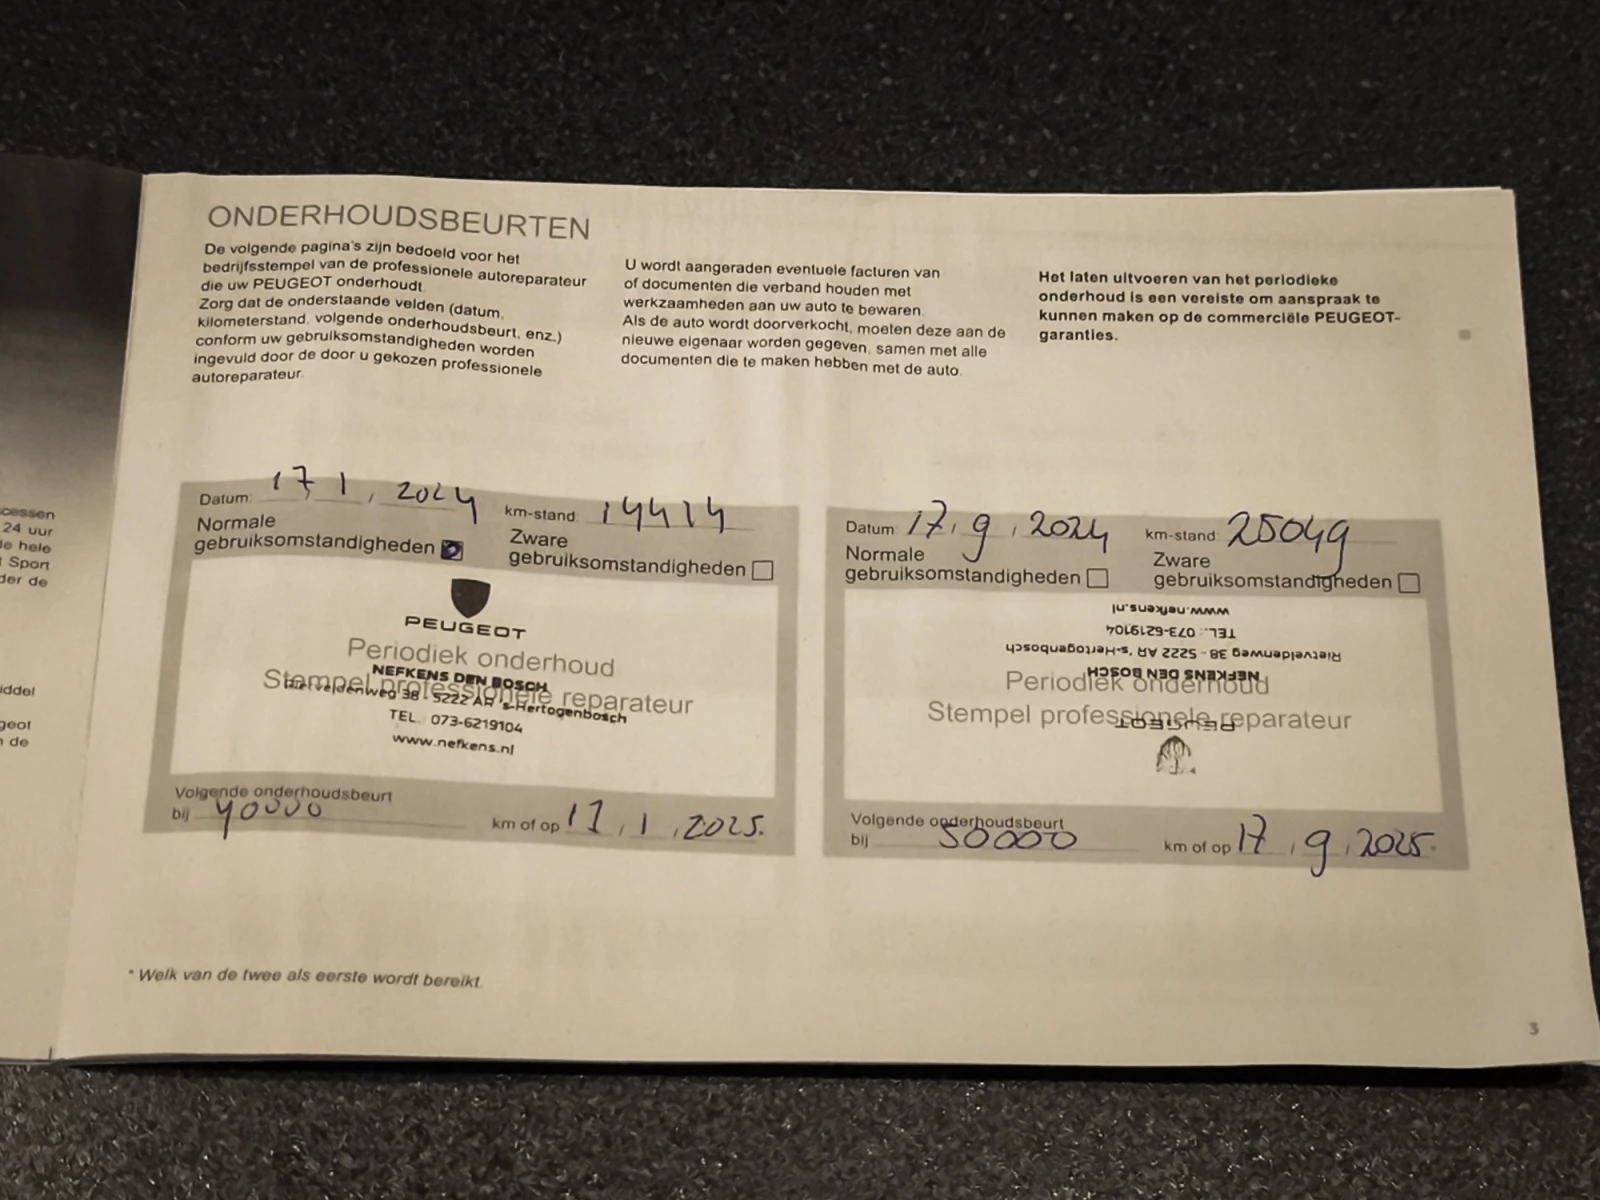 ONDERHOUDSBEURTEN
De volgende pagina's zijn bedoeld voor het
bedrijfsstempel van de professionele autoreparateur
die uw PEUGEOT onderhoudt.
Zorg dat de onderstaande velden (datum,
kilometerstand, volgende onderhoudsbeurt, enz.)
conform uw gebruiksomstandigheden worden
ingevuld door de door u gekozen professionele
autoreparateur.
U wordt aangeraden eventuele facturen van
of documenten die verband houden met
werkzaamheden aan uw auto te bewaren.
Als de auto wordt doorverkocht, moeten deze aan de
nieuwe eigenaar worden gegeven, samen met alle
documenten die te maken hebben met de auto.
Het laten uitvoeren van het periodieke
onderhoud is een vereiste om aanspraak te
kunnen maken op de commerciële PEUGEOT-
garanties.
cessen
24 uur
hele
Sport
der de
iddel
geot
de
Datum: 17, 1, 2024 km-stand: 14414
Normale
gebruiksomstandigheden
Zware
gebruiksomstandigheden
PEUGEOT
Periodiek onderhoud
NEFKENS DEN BOSCH
Stempel professionele reparateur
Rietveldenweg 38 - 5222 AR 's-Hertogenbosch
TEL. 073-6219104
www.nefkens.nl
Volgende onderhoudsbeurt
bij 40000 km of op 17, 1, 2025.
Datum: 17, 9, 2024 km-stand: 25049
Normale
gebruiksomstandigheden
Zware
gebruiksomstandigheden
www.nefkens.nl
TEL.: 073-6219104
Rietveldenweg 38 - 5222 AR 's-Hertogenbosch
NEFKENS DEN BOSCH
Periodiek onderhoud
Stempel professionele reparateur
PEUGEOT
Volgende onderhoudsbeurt
bij 50000 km of op 17, 9, 2025.
* Welk van de twee als eerste wordt bereikt.
3